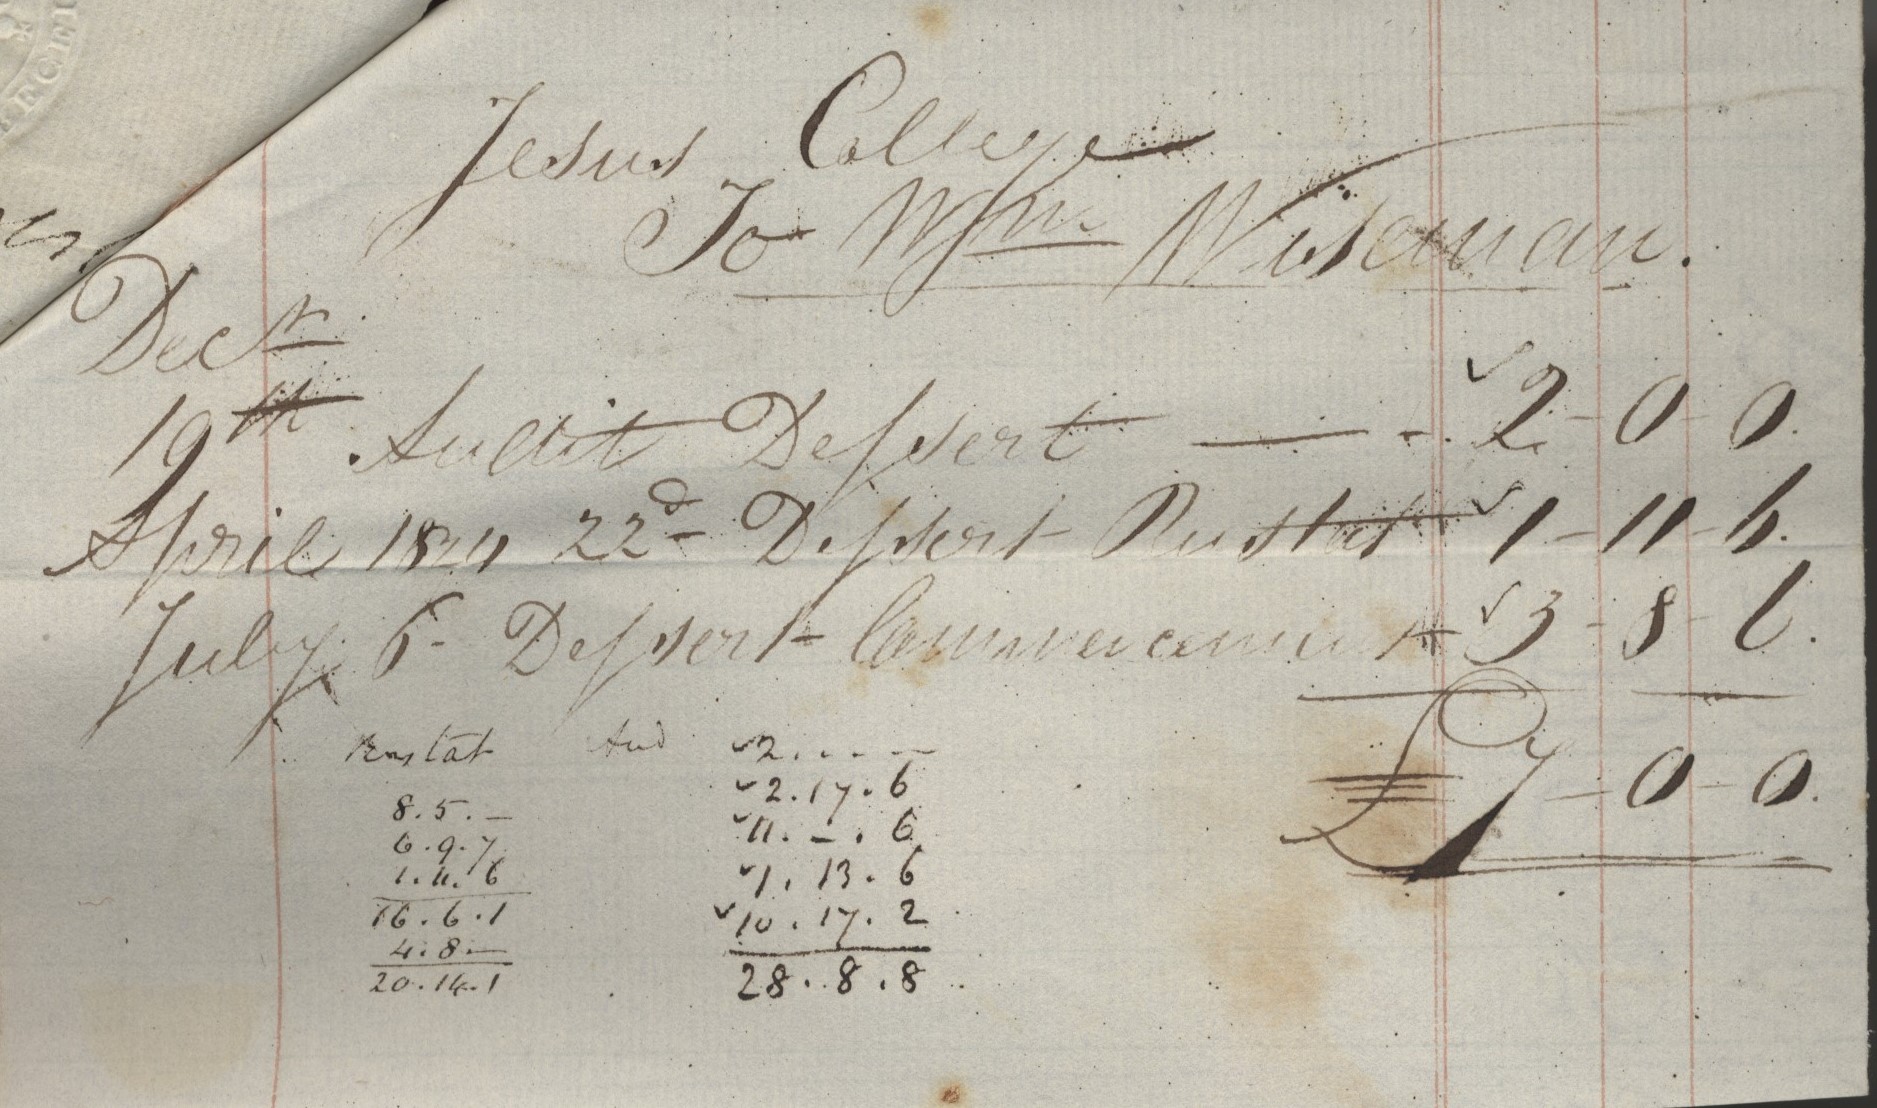 ECEI
Jesus College
To Wm Wiseman.
Decr
19th Audit Dessert — 2-0-0.
April 1824 22d Dessert Rustat 1-11-6.
July 6- Dessert Commencement 3-8-6.
£7-0-0.
Rustat Aud 2. - -
2.17.6
8.5.- 11.-.6
6.9.7 1.13.6
1.11.6 10.17.2
16.6.1
4.8- 28.8.8
20.14.1